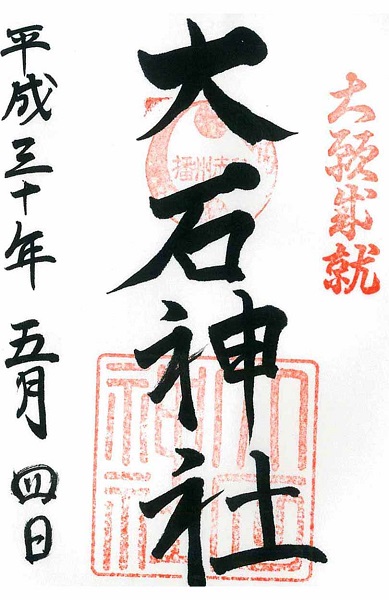 大願成就
大石神社
播州赤穂
平成三十年 五月 四日